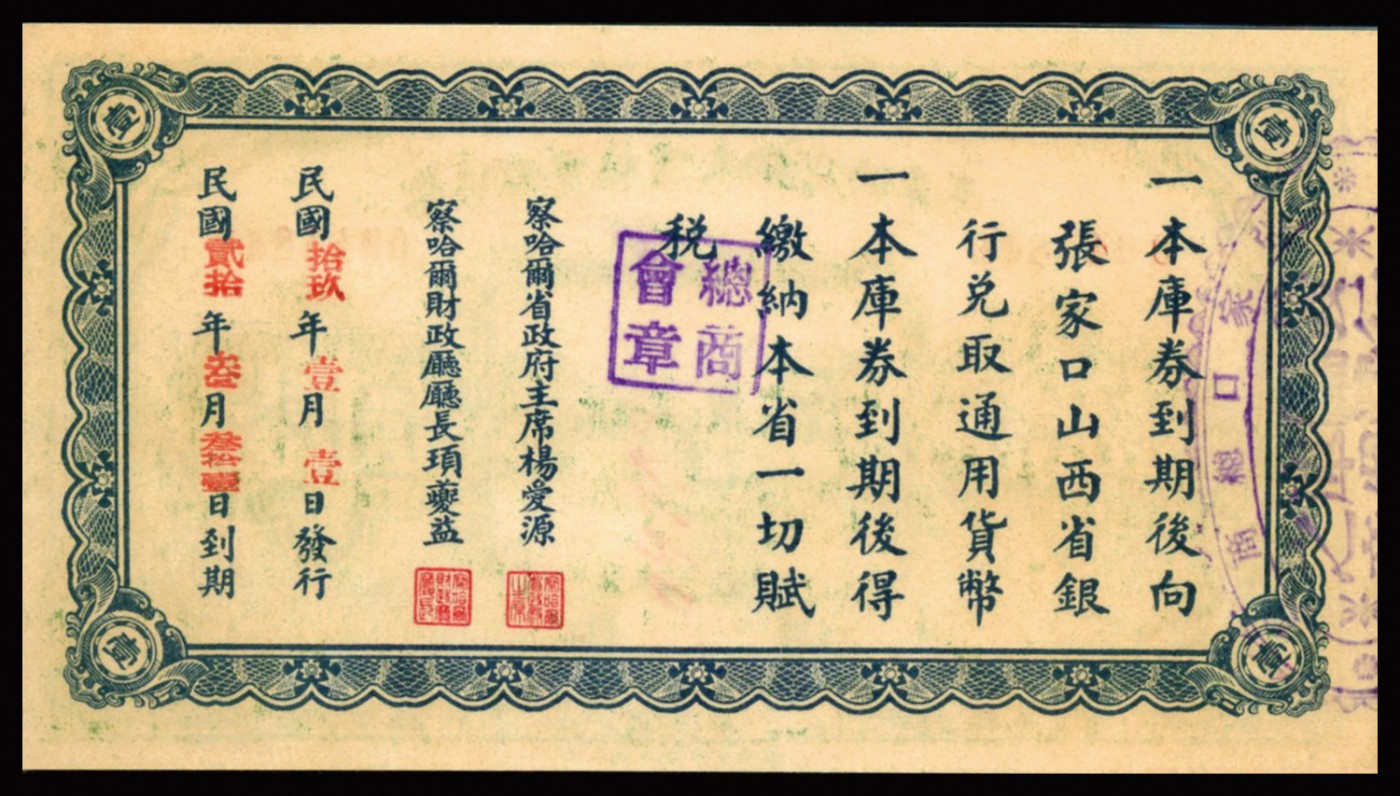 一本庫券到期後向
張家口山西省銀
行兌取通用貨幣
一本庫券到期後得
繳納本省一切賦
稅
總商
會章
察哈爾省政府主席楊愛源
察哈爾財政廳廳長項夔益
民國拾玖年壹月壹日發行
民國貳拾年叁月叁拾壹日到期
壹
壹
壹
壹
家口總商